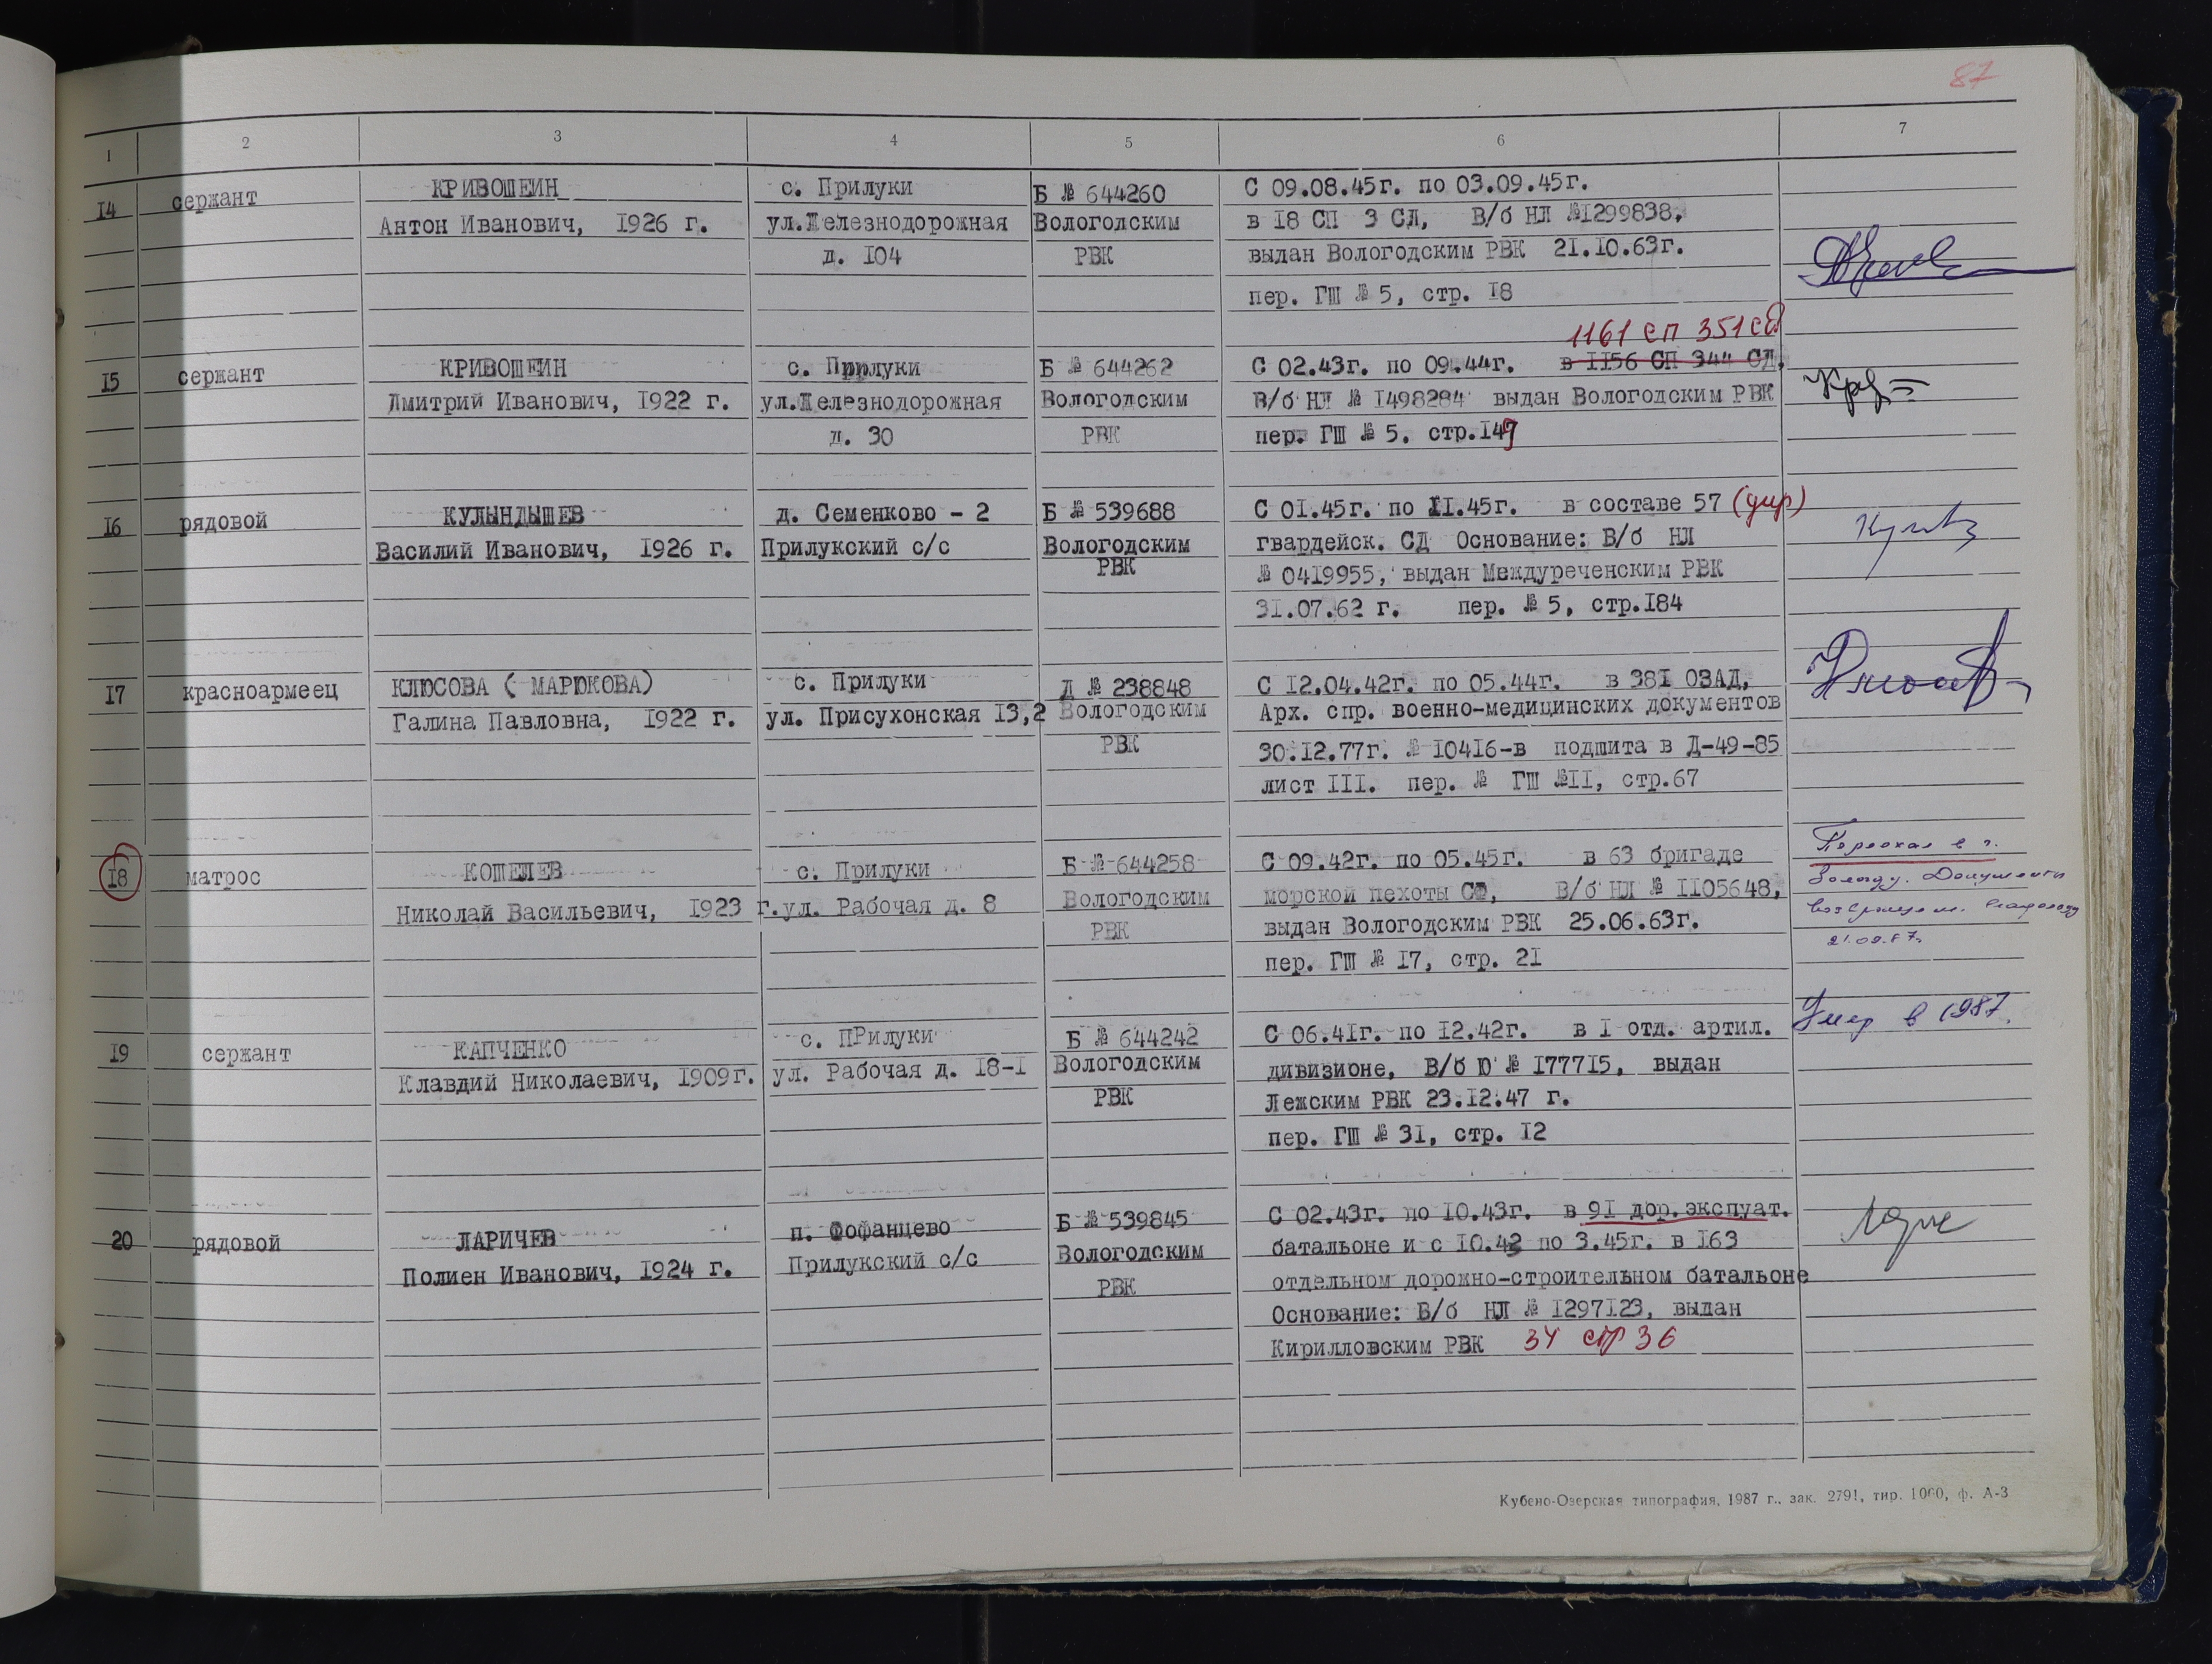 87
1 2 3 4 5 6 7
14 сержант КРИВОШЕИН с. Прилуки Б № 644260 С 09.08.45г. по 03.09.45г.
Антон Иванович, 1926 г. ул.Железнодорожная Вологодским в 18 СП 3 СД, В/б НЛ №1299838,
д. 104 РВК выдан Вологодским РВК 21.10.63г.
пер. ГШ № 5, стр. 18
1161 СП 351 СД
15 сержант КРИВОШЕИН с. Прилуки Б № 644262 С 02.43г. по 09.44г. в 1156 СП 344 СД,
Дмитрий Иванович, 1922 г. ул.Железнодорожная Вологодским В/б НЛ № 1498284 выдан Вологодским РВК
д. 30 РВК пер. ГШ № 5. стр.149
16 рядовой КУЛЫНДЫШЕВ д. Семенково - 2 Б № 539688 С 01.45г. по 11.45г. в составе 57
Василий Иванович, 1926 г. Прилукский с/с Вологодским гвардейск. СД Основание: В/б НЛ
РВК № 0419955, выдан Междуреченским РВК
31.07.62 г. пер. № 5, стр.184
17 красноармеец КЛЮСОВА ( МАРЮКОВА) с. Прилуки Д № 238848 С 12.04.42г. по 05.44г. в 381 ОЗАД,
Галина Павловна, 1922 г. ул. Присухонская 13,2 Вологодским Арх. спр. военно-медицинских документов
РВК 30.12.77г. № 10416-в подшита в Д-49-85
лист III. пер. № ГШ №II, стр.67
18 матрос КОШЕЛЕВ с. Прилуки Б № 644258 С 09.42г. по 05.45г. в 63 бригаде Переехал в г.
Николай Васильевич, 1923 г. ул. Рабочая д. 8 Вологодским морской пехоты СФ, В/б НЛ № 1105648, Вологду. Документы
РВК выдан Вологодским РВК 25.06.63г.
пер. ГШ № 17, стр. 21
19 сержант КАПЧЕНКО с. ПРилуки Б № 644242 С 06.41г. по 12.42г. в I отд. артил. Умер в 1987.
Клавдий Николаевич, 1909г. ул. Рабочая д. 18-1 Вологодским дивизионе, В/б Ю № 177715, выдан
РВК Лежским РВК 23.12.47 г.
пер. ГШ № 31, стр. 12
20 рядовой ЛАРИЧЕВ п. Фофанцево Б № 539845 С 02.43г. по 10.43г. в 91 дор.экспуат.
Полиен Иванович, 1924 г. Прилукский с/с Вологодским батальоне и с 10.43 по 3.45г. в 163
РВК отдельном дорожно-строительном батальоне
Основание: В/б НЛ № 1297123, выдан
Кирилловским РВК 34 стр 36
Кубено-Озерская типография, 1987 г., зак. 2791, тир. 1000, ф. А-3